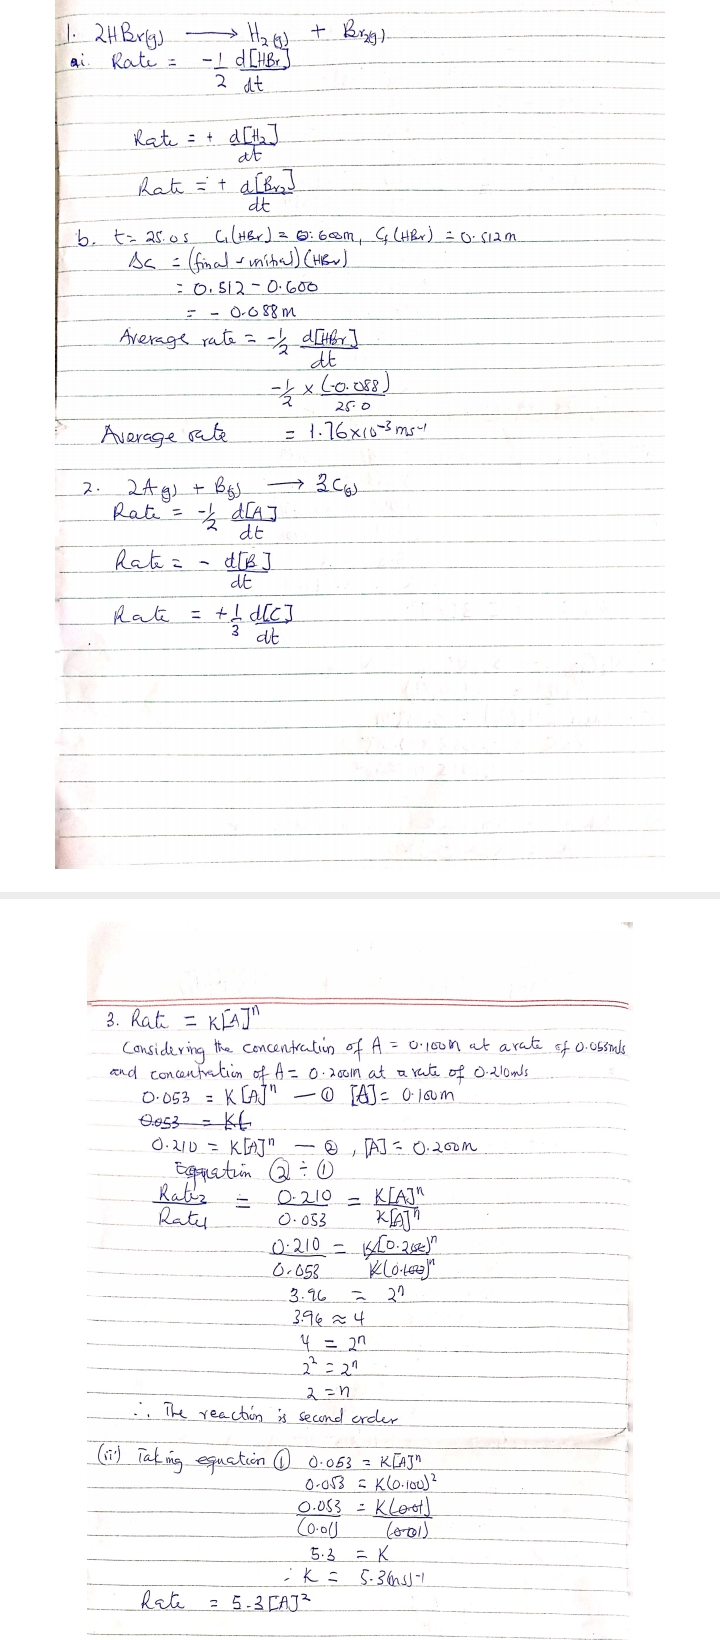 1. 2HBr(g) → H2(g) + Br2(g)
ai. Rate = -1/2 d[HBr]/dt
Rate = + d[H2]/dt
Rate = + d[Br2]/dt
b. t = 25.0s C1(HBr) = 0.600m, Cf(HBr) = 0.512m
Δc = (final - initial)(HBr)
= 0.512 - 0.600
= - 0.088m
Average rate = -1/2 d[HBr]/dt
-1/2 × (-0.088)/25.0
Average rate = 1.76×10⁻³ms⁻¹
2. 2A(g) + B(g) → 3C(g)
Rate = -1/2 d[A]/dt
Rate = - d[B]/dt
Rate = +1/3 d[C]/dt
3. Rate = K[A]ⁿ
Considering the concentration of A = 0.100m at a rate of 0.053m/s
and concentration of A = 0.200m at a rate of 0.210m/s
0.053 = K[A]ⁿ — ① [A] = 0.100m
0.053 = K(
0.210 = K[A]ⁿ — ②, [A] = 0.200m
Equation ② ÷ ①
Rate2/Rate1 = 0.210/0.053 = K[A]ⁿ/K[A]ⁿ
0.210/0.053 = K[0.200]ⁿ/K[0.100]ⁿ
3.96 = 2ⁿ
3.96 ≈ 4
4 = 2ⁿ
2² = 2ⁿ
2 = n
∴ The reaction is second order
(ii) Taking equation ① 0.053 = K[A]ⁿ
0.053 = K(0.100)²
0.053/(0.01) = K(0.01)/(0.01)
5.3 = K
∴ K = 5.3(ms)-1
Rate = 5.3[A]²